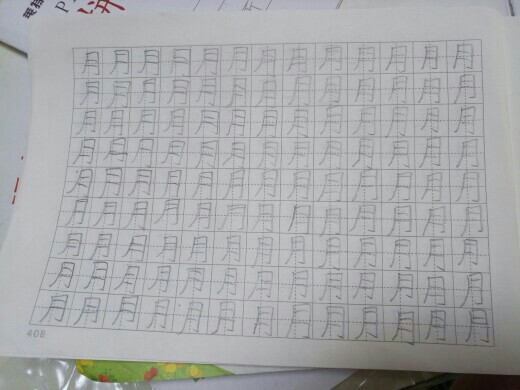 月月月月月月月月月月月月月
月月月月月月月月月月月月月
月月月月月月月月月月月月月
月月月月月月月月月月月月月
月月月月月月月月月月月月月
月月月月月月月月月月月月月
月月月月月月月月月月月月月
月月月月月月月月月月月月月
月月月月月月月月月月月月月
408